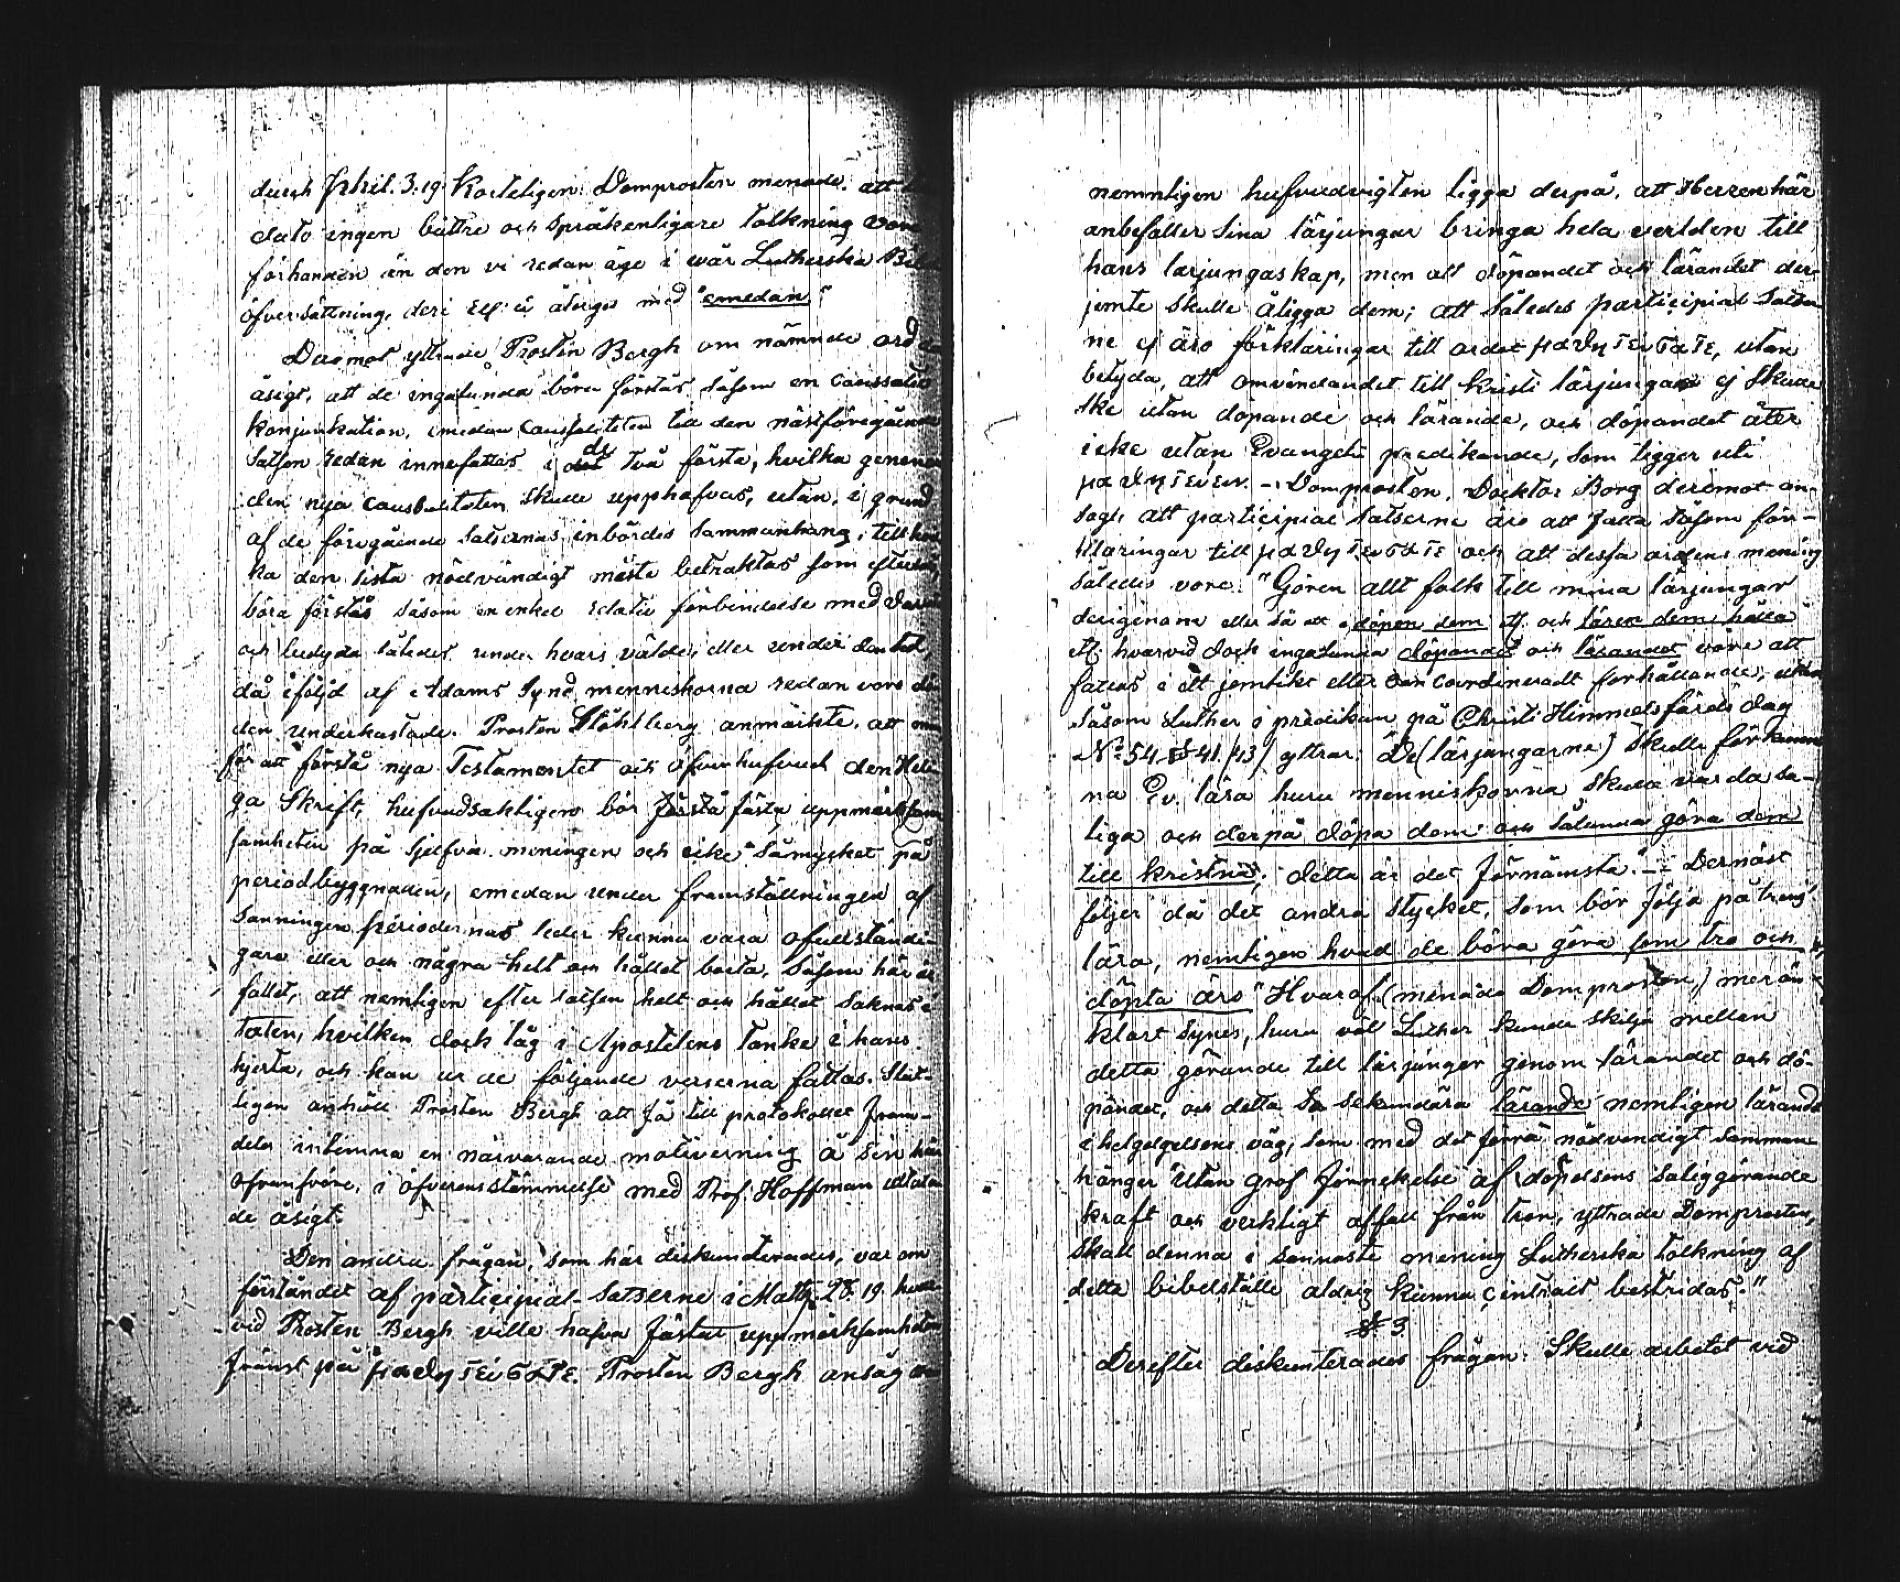 durch Phil. 3:19. Korteligen: Domprosten menade, att
dato ingen bättre och språkenligare tolkning vore
förhanden än den vi redan äge i wår Lutherska
öfversättning, deri återges med "emedan"
Deremot yttrade Prosten Bergh om nämnde ord
åsigt, att de ingalunda böra förstås såsom en caussativ
konjunktion, emedan causaliteten till den nästföregående
satsen redan innefattas i de två första, hvilka genom
den nya causaliteten skulle upphäfvas, utan, i grund
af de föregående satsernas inbördes sammanhang, till
ka den sista nödvändigt måste betraktas som
böra förstås såsom en enkel relativ förbindelse med
och betyda således under hvars välde, eller under den
då i följd af Adams synd menniskorna redan voro
den underkastade. Prosten Ståhlberg anmärkte, att
för att förstå nya Testamentet och öfverhufvud den Heli
ga Skrift, hufvudsakligen bör fästa uppmärksam
samheten på sjelfva meningen och icke såmycket på
periodbyggnaden, emedan under framställningen af
sanningen periodernas leder kunna vara ofullständi-
gare eller och några helt och hållet borta, såsom här är
fallet, att nemligen efter satsen helt och hållet saknas i
texten, hvilken dock låg i Apostelens tanke i hans
hjerta, och kan ur de följande verserna fattas. Slut-
ligen anhöll Prosten Bergh att få till protokollet fram-
deles inlemna en närvarande motivering å sin här
ofvanföre, i öfverensstämmelse med Prof. Hoffman uttala
de åsigt.
Den andra frågan, som här diskuterades, var om
förståndet af participial-satserne i Math. 28. 19. hvar
vid Prosten Bergh ville hafva fästat uppmärksamheten
främst på μαϑητεύσατε. Prosten Bergh ansåg
nemnligen hufvudvigten ligga derpå, att Herren här
anbefaller sina lärjungar bringa hela verlden till
hans lärjungaskap, men att döpandet och lärandet der-
jemte skulle åligga dem; att således participial-satser
ne ej äro förklaringar till ordet μαϑητευσατε, utan
betyda, att omvändandet till Kristi lärjungar ej skulle
ske utan döpande och lärande, och döpandet åter
icke utan Evangelii predikande, som ligger uti
μαϑητεύειν. - Domprosten, Docktor Borg deremot an-
sågs att participial satserne äro att fatta såsom för-
klaringar till μαϑητευσατε och att dessa ordens mening
således vore: "Gören allt folk till mina lärjungar
derigenom eller så att i döpen dem etc och lären dem hålla
etc hvarvid dock ingalunda döpandet och lärandet vore att
fattas i ett jemlikt eller coordineradt förhållande, utan
såsom Luther i predikan på Christi Himmelsfärds dag
No 54 § 41 /43/ yttrar: "De (lärjungarne) skulle förkunna
na Ev. lära huru menniskorna skulle varda sa-
liga och derpå döpa dem och sålunda göra dem
till kristna; detta är det förnämsta." - Dernäst
följer då det andra stycket, som bör följa på trons
lära, nemligen hvad de böra göra som tro och
döpta äro" Hvaraf (menade Domprosten,) mer än
klart synes, huru väl Luther kunde skilja mellan
detta görande till lärjungar genom lärandet och dö-
pandet, och detta sekundära lärande nemligen lärande
i helgelsens väg, som med det förra nödvendigt samman-
hänger "Utan grof förnekelse af döpelsens saliggörande
kraft och verkligt affall från tron, yttrade Domprosten,
skall denna i sannaste mening Lutherska tolkning af
detta bibelställe aldrig kunna centralt bestridas."
§ 3
Derefter diskuterades frågan: Skulle arbetet vid